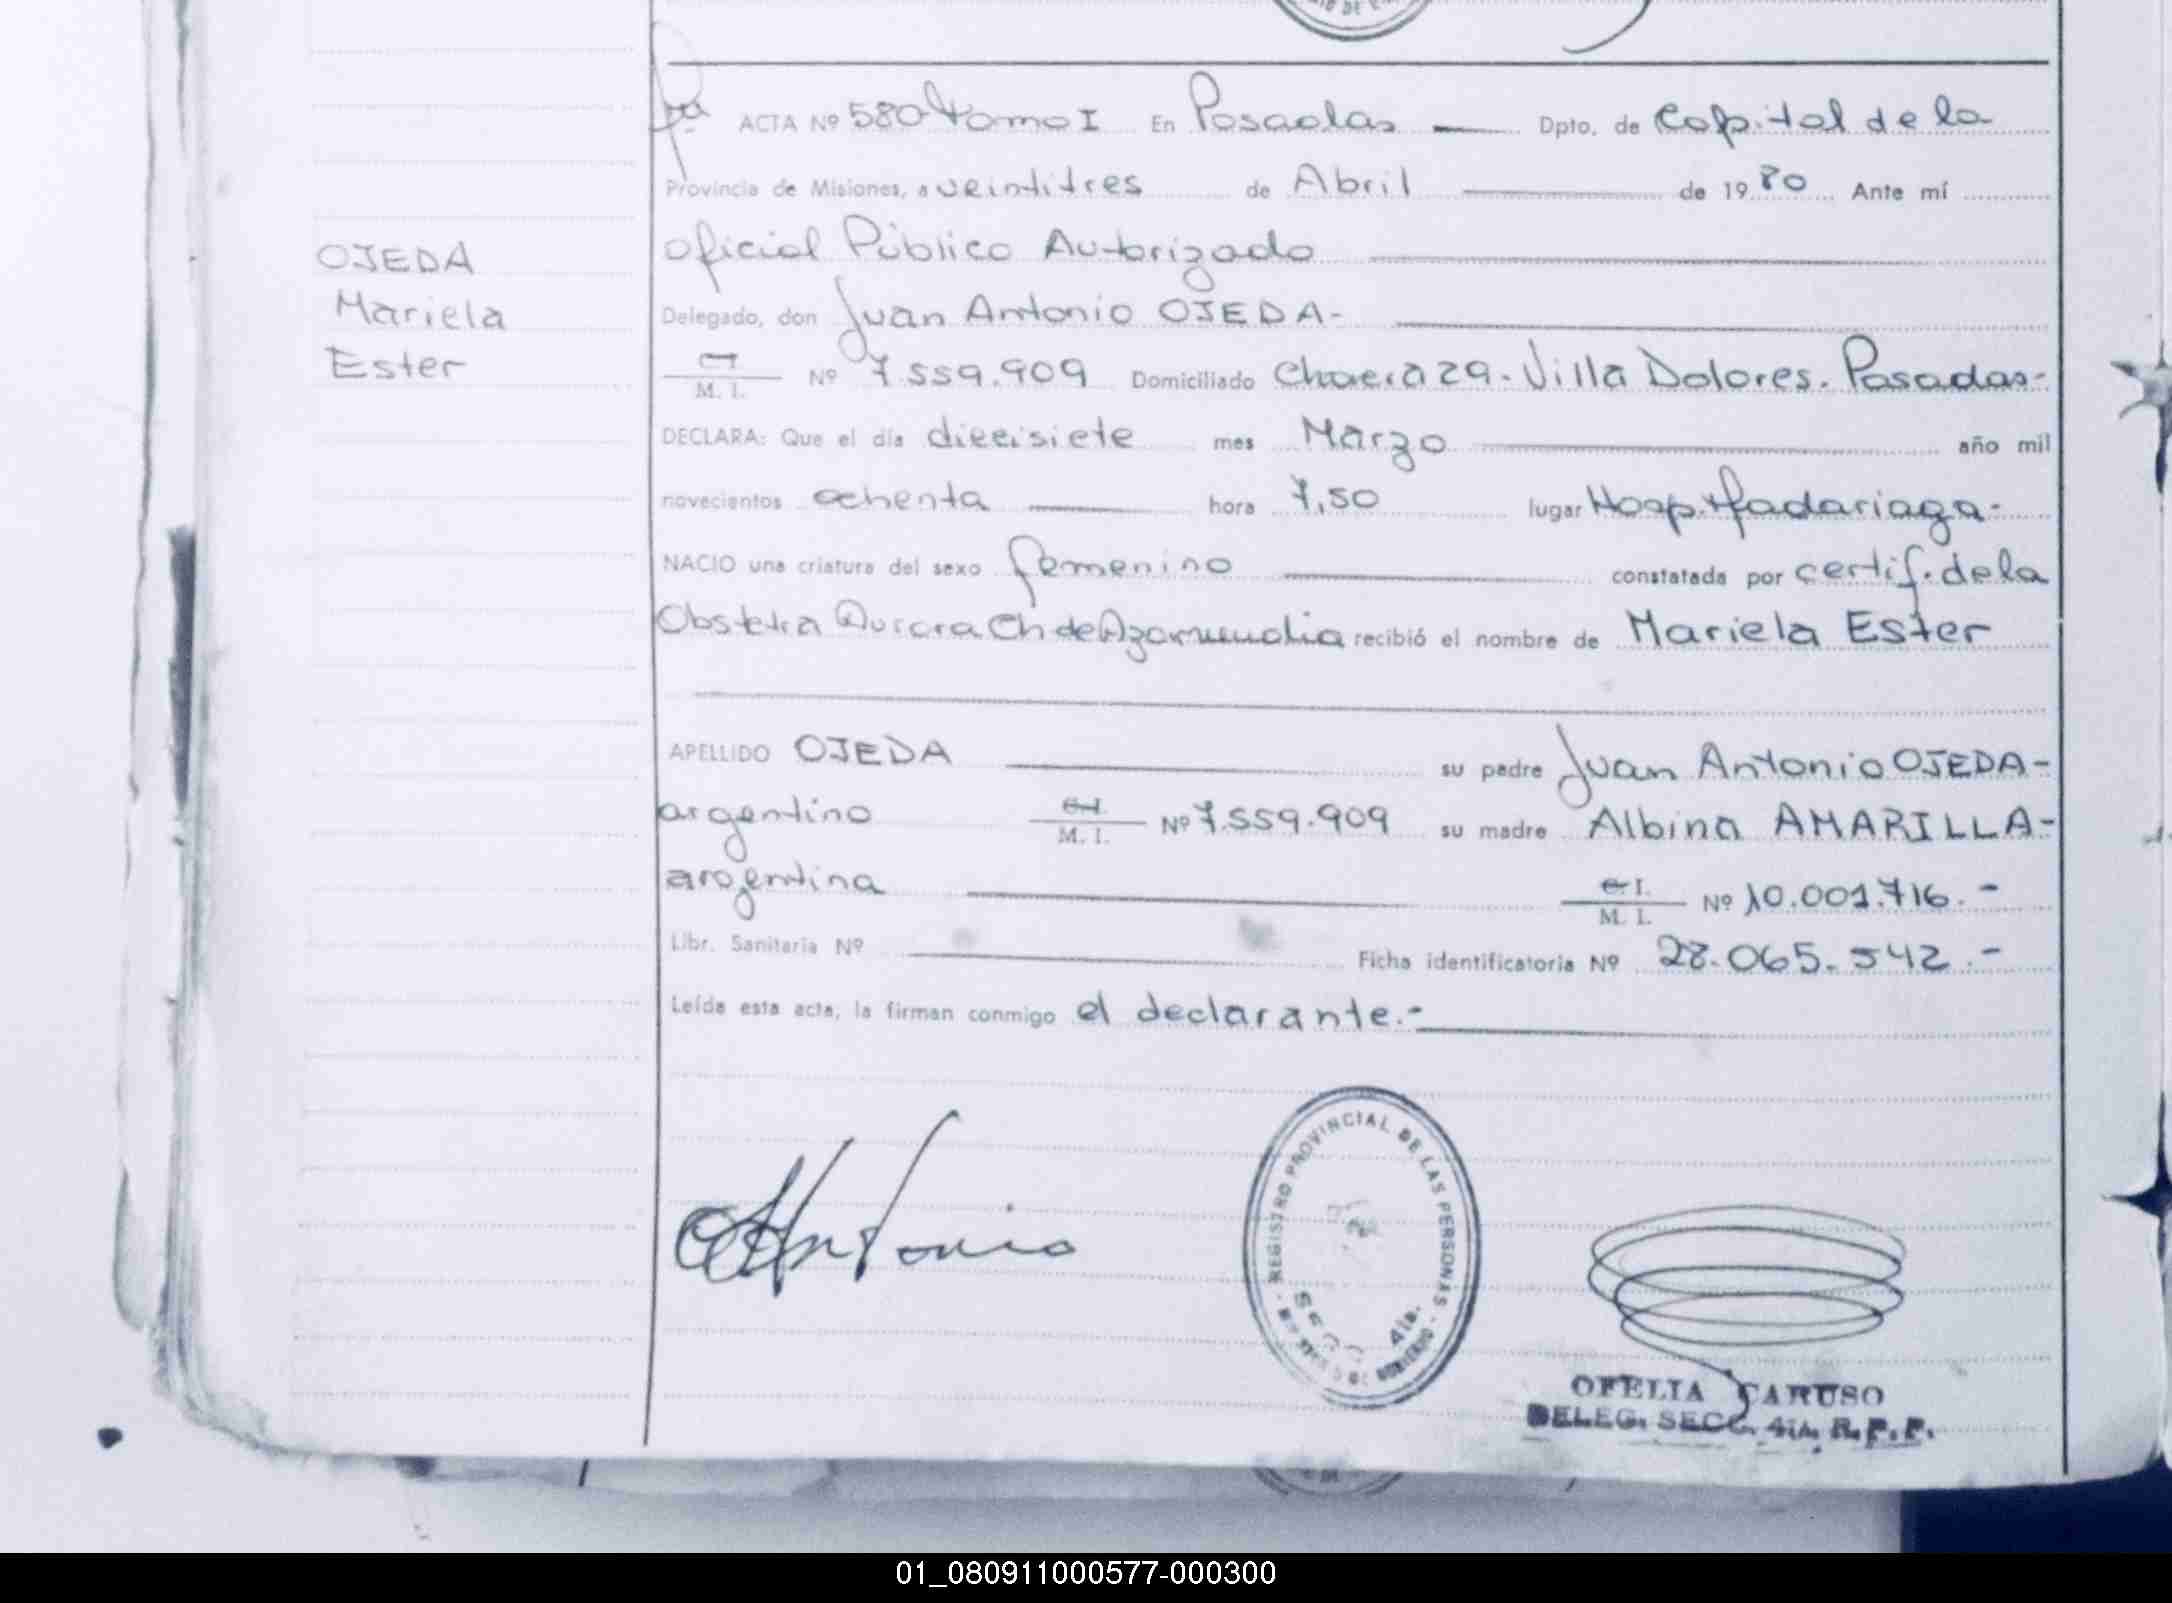 ACTA Nº 580 tomo I En Posadas Dpto. de Capital de la
Provincia de Misiones, a veintitres de Abril de 1980 Ante mí
oficial Público Autorizado
OJEDA
Mariela
Ester
Delegado, don Juan Antonio OJEDA-
C.I. M. I. Nº 7.559.909 Domiciliado Chacra 29. Villa Dolores. Posadas-
DECLARA: Que el día diecisiete mes Marzo año mil
novecientos ochenta hora 7,50 lugar Hosp. Madariaga-
NACIO una criatura del sexo femenino constatada por certif. de la
Obstetra Aurora Ch de recibió el nombre de Mariela Ester
APELLIDO OJEDA su padre Juan Antonio OJEDA-
argentino C.I. M. I. Nº 7.559.909 su madre Albina AMARILLA-
argentina C.I. M. I. Nº 10.001.716.-
Libr. Sanitaria Nº Ficha identificatoria Nº 28.065.542.-
Leída esta acta, la firman conmigo el declarante.-
Antonio
REGISTRO PROVINCIAL DE LAS PERSONAS
4ta.
OFELIA CARUSO
DELEG. SECC. 4ta. R.P.P.
01_080911000577-000300